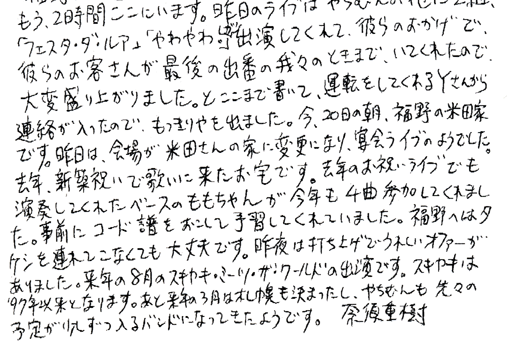 もう、2時間ここにいます。昨日のライブは やちむんの他に2組、
「フェスタ・ダ・ルア」「やわやわ」が出演してくれて、彼らのおかげで、
彼らのお客さんが最後の出番の我々のときまで、いてくれたので、
大変盛り上がりました。とここまで書いて、運転をしてくれるYさんから
連絡が入ったので、もっきりやを出ました。今、20日の朝、福野の米田家
です。昨日は、会場が米田さんの家に変更になり、宴会ライブのようでした。
去年、新築祝いで歌いに来たお宅です。去年のお祝いライブでも
演奏してくれたベースのももちゃんが今年も4曲参加してくれまし
た。事前にコード譜をおこして予習してくれていました。福野へはタ
ケシを連れてこなくても大丈夫です。昨夜は打ち上げでうれしいオファーが
ありました。来年の8月のスキヤキ・ミーツ・ザ・ワールドの出演です。スキヤキは
'97年以来となります。あと来年の3月は札幌も決まったし、やちむんも先々の
予定が少しずつ入るバンドになってきたようです。 奈須重樹